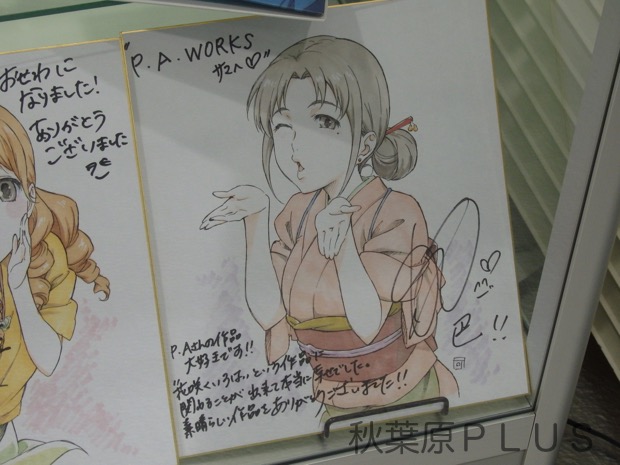 おせわに
なりました!
ありがとう
ございました
"P.A.WORKS
サマへ♡"
巴!!
P.Aさんの作品
大好きです!!
"花咲くいろは"という作品に
関わることが出来て本当に幸せでした。
素晴らしい作品をありがとうございました!!
秋葉原PLUS